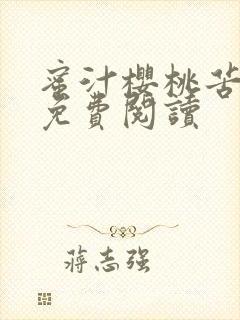 蜜汁櫻桃苦
免費閱讀
蔣志强